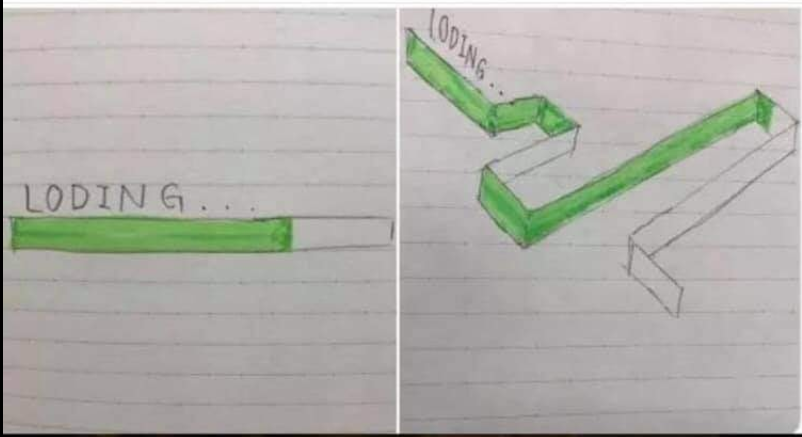 LODING...
LODING..